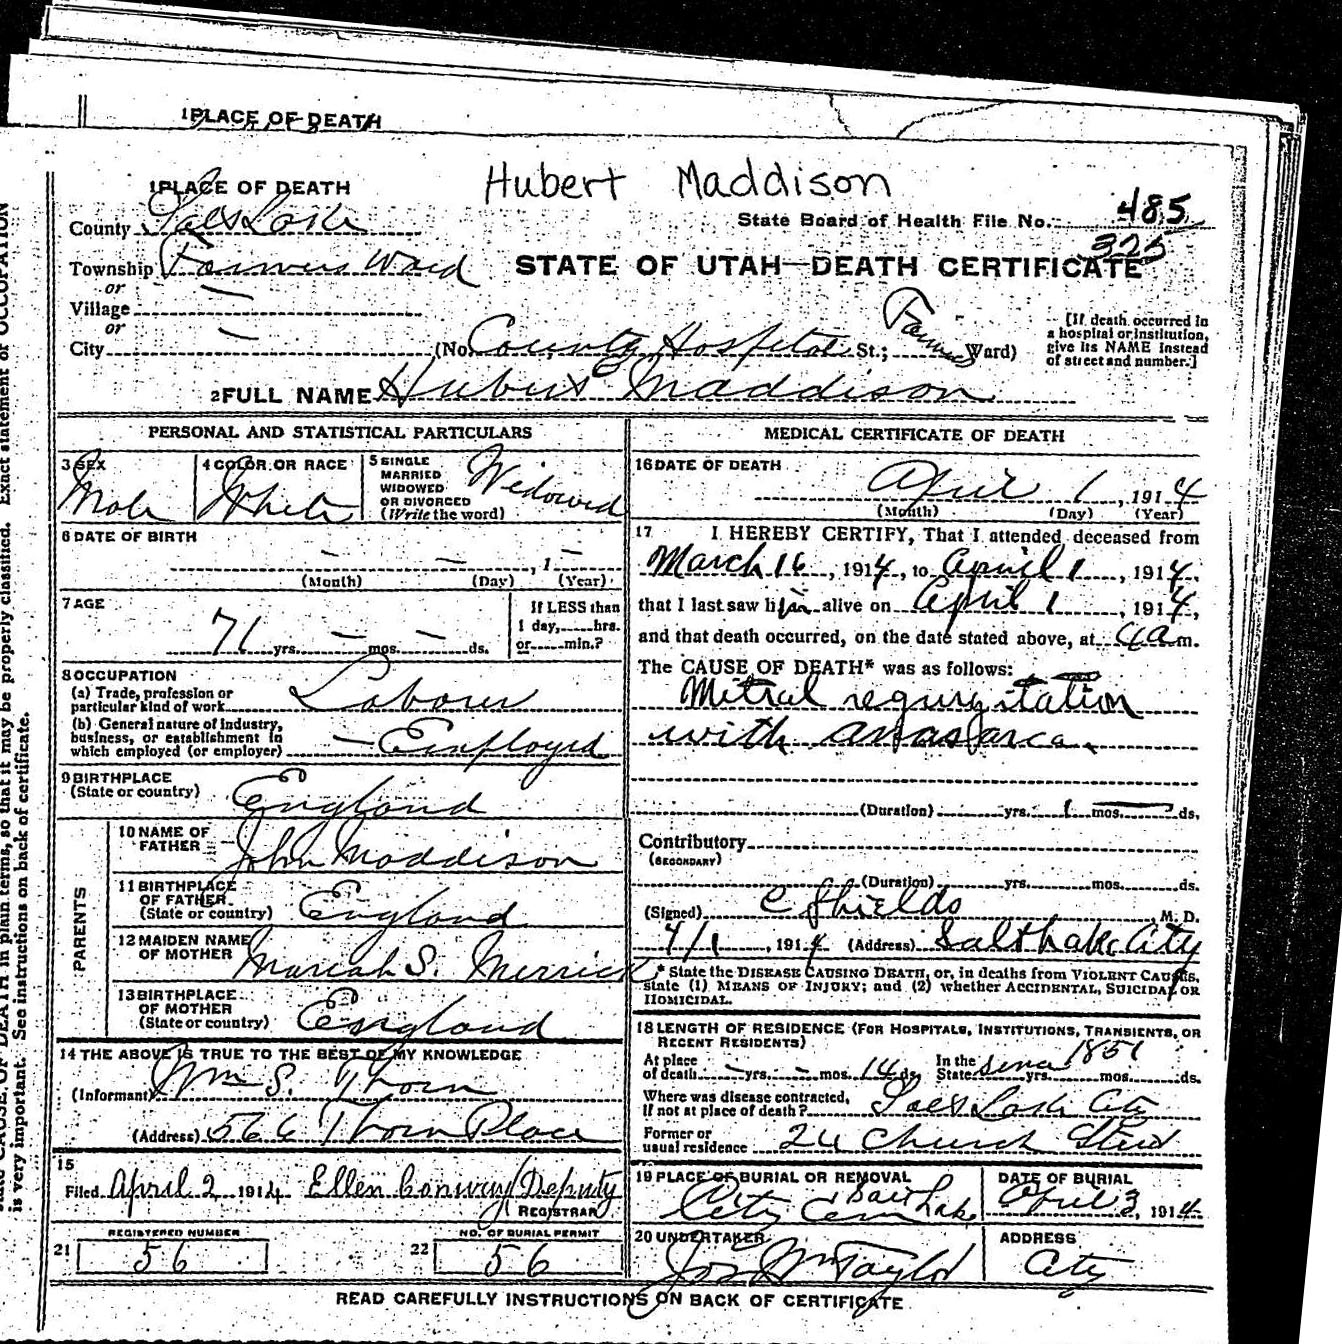 1PLACE OF DEATH
1PLACE OF DEATH
Hubert Maddison
County Salt Lake
State Board of Health File No. 485
325
Township Farmers Ward
STATE OF UTAH—DEATH CERTIFICATE
or
Village —
or
City —
(No. County Hospital St.; Farmers Ward)
[If death occurred in a hospital or institution, give its NAME instead of street and number.]
2FULL NAME Hubert Maddison
PERSONAL AND STATISTICAL PARTICULARS
3 SEX Male
4 COLOR OR RACE White
5 SINGLE MARRIED WIDOWED OR DIVORCED (Write the word) Widowed
6 DATE OF BIRTH
— — , 1 —
(Month) (Day) (Year)
7 AGE
71 yrs. — mos. — ds.
If LESS than 1 day, hrs. or min.?
8 OCCUPATION
(a) Trade, profession or particular kind of work Laborer
(b) General nature of industry, business, or establishment in which employed (or employer) — Employed
9 BIRTHPLACE (State or country) England
PARENTS
10 NAME OF FATHER John Maddison
11 BIRTHPLACE OF FATHER (State or country) England
12 MAIDEN NAME OF MOTHER Mariah S. Merrick
13 BIRTHPLACE OF MOTHER (State or country) England
14 THE ABOVE IS TRUE TO THE BEST OF MY KNOWLEDGE
(Informant) Wm S. Thorn
(Address) 566 Thorn Place
15
Filed April 2 1914 Ellen Conway/Deputy
REGISTRAR
REGISTERED NUMBER
21 56
NO. OF BURIAL PERMIT
22 56
MEDICAL CERTIFICATE OF DEATH
16 DATE OF DEATH
April 1, 1914
(Month) (Day) (Year)
17 I HEREBY CERTIFY, That I attended deceased from
March 16, 1914, to April 1, 1914,
that I last saw him alive on April 1, 1914,
and that death occurred, on the date stated above, at 4 a m.
The CAUSE OF DEATH* was as follows:
Mitral regurgitation
with anasarca
(Duration) yrs. 1 mos. — ds.
Contributory
(SECONDARY)
(Duration) yrs. mos. ds.
(Signed) C Shields M. D.
4/1, 1914 (Address) Salt Lake City
* State the DISEASE CAUSING DEATH, or, in deaths from VIOLENT CAUSES, state (1) MEANS OF INJURY; and (2) whether ACCIDENTAL, SUICIDAL OR HOMICIDAL.
18 LENGTH OF RESIDENCE (FOR HOSPITALS, INSTITUTIONS, TRANSIENTS, OR RECENT RESIDENTS)
At place of death — yrs. — mos. 14 ds. In the State since 1851 yrs. mos. ds.
Where was disease contracted, if not at place of death? Salt Lake City
Former or usual residence 24 Church Street
19 PLACE OF BURIAL OR REMOVAL
City Cem Salt Lake
DATE OF BURIAL
April 3, 1914
20 UNDERTAKER
Jos Wm Taylor
ADDRESS
City
READ CAREFULLY INSTRUCTIONS ON BACK OF CERTIFICATE
CAUSE OF DEATH in plain terms, so that it may be properly classified. Exact statement of OCCUPATION
is very important. See instructions on back of certificate.